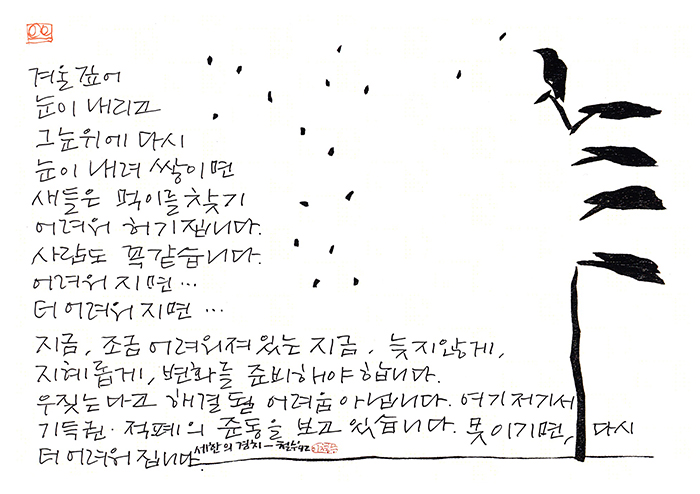 겨울 깊어
눈이 내리고
그 눈 위에 다시
눈이 내려 쌓이면
새들은 먹이를 찾기
어려워 허기집니다.
사람도 꼭 같습니다.
어려워 지면…
더 어려워 지면…
지금, 조금 어려워져 있는 지금, 늦지않게,
지혜롭게, 변화를 준비해야 합니다.
우짖는다고 해결될 어려움 아닙니다. 여기저기서
기득권·적폐의 준동을 보고 있습니다. 못 이기면, 다시
더 어려워 집니다.
세한의 경치 – 철수92